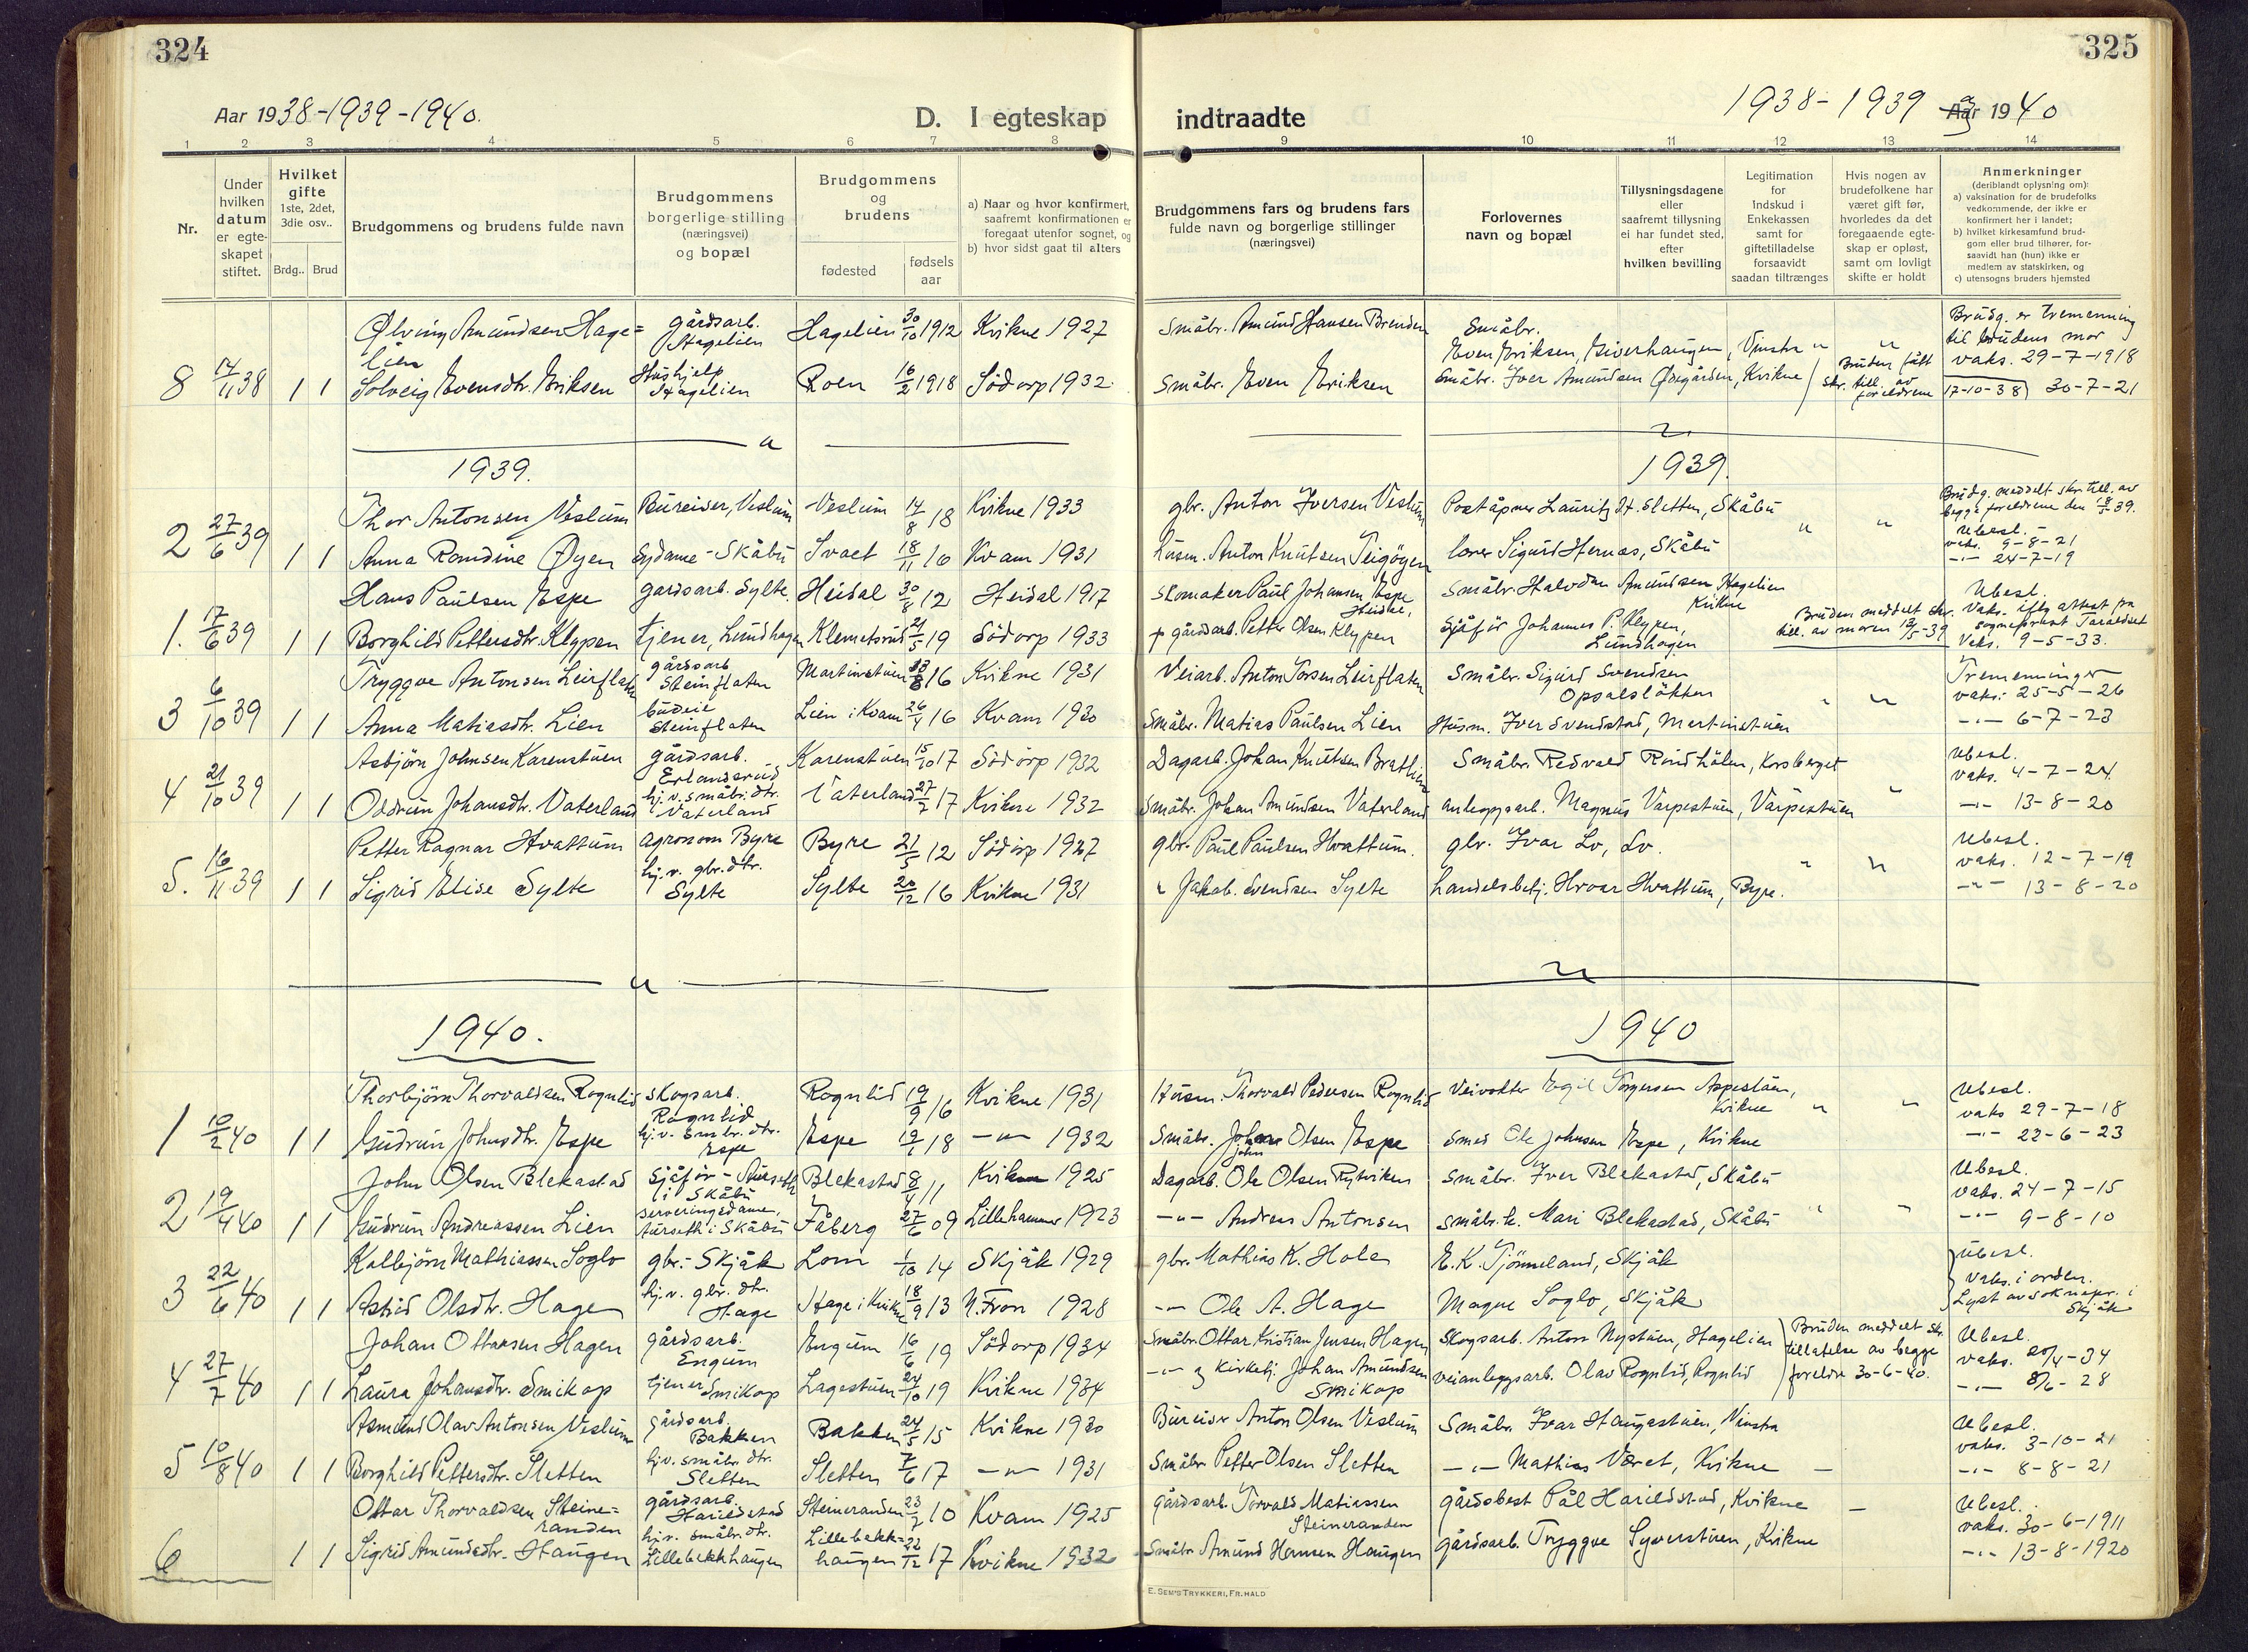 324
Aar 1938-1939-1940.
D. I egteskap
1 2 3 4 5 6 7 8
Nr.
Under hvilken datum er egteskapet stiftet.
Hvilket gifte
1ste, 2det, 3die osv..
Brdg.. Brud
Brudgommens og brudens fulde navn
Brudgommens borgerlige stilling (næringsvei) og bopæl
Brudgommens og brudens
fødested
fødsels aar
a) Naar og hvor konfirmert, saafremt konfirmationen er foregaat utenfor sognet, og
b) hvor sidst gaat til alters
Ølving Amundsen Hage= gårdsarb. Hagelien 30/10 1912 Kvikne 1927
lien Hagelien
8 14/11 38 1 1 Solveig Evensdtr. Eriksen Hushjelp Hagelien Roen 16/2 1918 Södorp 1932
1939.
Thor Antonsen Veslum Bureiser, Veslum Veslum 14/8 18 Kvikne 1933
2 27/6 39 1 1 Anna Romdine Øyen Sydame - Skåbu Svaet 18/11 16 Kvam 1931
Hans Paulsen Espe gardsarb. Sylte. Heidal 30/8 12 Heidal 1917
1. 17/6 39 1 1 Borghild Pettersdtr. Klypen tjener, Lundhagen Klemetsrud 21/5 19 Södorp 1933
Tryggve Antonsen Leirflaten gårdsarb Steinflaten Martinstuen 16 Kvikne 1931
3 6/10 39 1 1 Anna Matiasdtr. Lien budeie Steinflaten Lien i Kvam 26/4 16 Kvam 1930
Asbjörn Johnsen Karenstuen gårdsarb. Erlandsrud Karenstuen 15/10 17 Södorp 1932
4 21/10 39 1 1 Oddrun Johansdtr. Vaterland hj.v. småbr.dtr. Vaterland Vaterland 27/7 17 Kvikne 1932
Petter Ragnar Hvattum agronom Byre Byre 21/5 12 Södorp 1927
5. 16/11 39 1 1 Sigrid Elise Sylte hj.v. gbr.dtr. Sylte Sylte 20/12 16 Kvikne 1931
1940.
Thorbjörn Thorvaldsen Rognlid skogsarb. Rognlid Rognlid 19/9 16 Kvikne 1931
1 10/2 40 1 1 Gudrun Johnsdtr. Espe hj.v. småbr. dtr. Espe Espe 18 -"- 1932
John Olsen Blekastad Sjåför - i Skåbu Blekastad 8/4 11 Kvikne 1925
2 19/4 40 1 1 Gudrun Andreassen Lien serveringsdame, i Skåbu Fåberg 27/6 09 Lillehammer 1923
Kolbjörn Mathiassen Soglo gbr. - Skjåk Lom 1/10 14 Skjåk 1929
3 22/6 40 1 1 Astrid Olsdtr. Hage hj.v. gbr. dtr. Hage Hage i Kvikne 18/9 13 N. Fron 1928
Johan Ottarsen Hagen gårdsarb. Engum Engum 16/6 19 Södorp 1934
4 27/7 40 1 1 Laura Johansdtr. Smikop tjener Smikop Lagestuen 24/10 19 Kvikne 1934
Asmund Olav Antonsen Veslum gårdsarb. Bakken Bakken 24/5 15 Kvikne 1930
5 10/8 40 1 1 Borghild Pettersdtr. Sletten hj.v. småbr. dtr. Sletten Sletten 7/6 17 -"- 1931
Ottar Thorvaldsen Steine= gårdsarb. Harildstad Steineranden 23/7 10 Kvam 1925
randen
6 1 1 Sigrid Amundsdtr. Haugen hj.v. småbr. dtr. Lillebekkhaugen Lillebekk=haugen 22/12 17 Kvikne 1932
325
1938-1939 og 1940
indtraadte
9 10 11 12 13 14
Brudgommens fars og brudens fars fulde navn og borgerlige stillinger (næringsvei)
Forlovernes navn og bopæl
Tillysningsdagene eller saafremt tillysning ei har fundet sted, efter hvilken bevilling
Legitimation for Indskud i Enkekassen samt for giftetilladelse forsaavidt saadan tiltrænges
Hvis nogen av brudefolkene har været gift før, hvorledes da det foregaaende egteskap er opløst, samt om lovligt skifte er holdt
Anmerkninger
(deriblandt oplysning om):
a) vaksination for de brudefolks vedkommende, der ikke er konfirmert her i landet;
b) hvilket kirkesamfund brudgom eller brud tilhører, forsaavidt han (hun) ikke er medlem av statskirken, og
c) utensogns bruders hjemsted
Småbr. Amund Hansen Brenden Småbr. Even Eriksen, Giverhaugen, Vinstra " " Brudg. er tremenning til brudens mor vaks. 29-7-1918
Småbr. Even Eriksen Småbr. Iver Amundsen Øxegården, Kvikne Bruden fått skr. till. av foreldrene 17-10-38) 30-7-21
1939.
gbr. Anton Iversen Veslum Poståpner Lauritz H. Sletten, Skåbu " " Brudg. meddelt skr. till. av begge foreldrene den 18/5 39. Ubesl.
husm. Anton Knutsen Teigøyen lærer Sigurd Hernæs, Skåbu vaks. 9-8-21
-"- 24-7-19
Skomaker Paul Johansen Espe Heidal, Småbr. Halvdan Amundsen Hagelien Kvikne Ubesl. Vaks. iflg attest fra sogneprest
gårdsarb. Petter Olsen Klypen sjåför Johannes P. Klypen, Lundhagen Bruden meddelt skr. till. av moren 39 Vaks. 9-5-33.
Veiarb. Anton Torsen Leirflaten Småbr. Sigurd Svendsen Opsalsløkken " " Tremenninger vaks. 25-5-26
Småbr. Matias Paulsen Lien Husm. Iver Svendstad, Martinstuen -"- 6-7-23
Dagarb. Johan Knutsen Bratlien Småbr. Redvald Rundhólm, Korsberget " Ubesl. vaks. 4-7-24
Småbr. Johan Amundsen Vaterland anleggsarb. Magnus Varpestuen, Varpestuen -"- 13-8-20
gbr. Paul Paulsen Hvattum. gbr. Ivar Lo, Lo. " " Ubesl. vaks. 12-7-19
" Jakob Svendsen Sylte handelsbetj. Hroar Hvattum, Byre. -"- 13-8-20
1940
Husm. Thorvald Pedersen Rognlid Veivokter Egil Torgersen Aspestuen, Kvikne " " Ubesl. vaks 29-7-18
Småbr. John Olsen Espe Smed Ole Johnsen Espe, Kvikne -"- 22-6-23
Dagarb. Ole Olsen Rytviken småbr. Iver Blekastad, Skåbu Ubesl. vaks. 24-7-15
-"- Andreas Antonsen småbr.k. Mari Blekastad, Skåbu " " -"- 9-8-10
gbr. Mathias K. Hole E. K. Tjönneland, Skjåk Ubesl. Vaks. i orden.
-"- Ole A. Hage Magne Soglo, Skjåk Lyst av soknepr. i Skjåk
Småbr. Ottar Kristian Jensen Hagen Skogsarb. Anton Nystuen, Hagelien Bruden meddelt skr. tillatelse av begge foreldre 30-6-40. Ubesl. vaks. 20/4-34
-"- og kirketj. Johan Amundsen Smikop veianleggsarb. Olav Rognlid, Rognlid -"- 8/6-28
Bureiser Anton Olsen Veslum Småbr. Ivar Haugastuen, Vinstra Ubesl. vaks. 3-10-21
Småbr. Petter Olsen Sletten -"- Mathias Været, Kvikne -"- 8-8-21
gårdsarb. Torvald Matiassen Steineranden gårdsbest Pål Harildstad, Kvikne Ubesl. vaks. 30-6-1911
Småbr. Amund Hansen Haugen gårdsarb. Tryggve Syverstuen, Kvikne -"- 13-8-1920
E. SEM'S TRYKKERI, FR.HALD